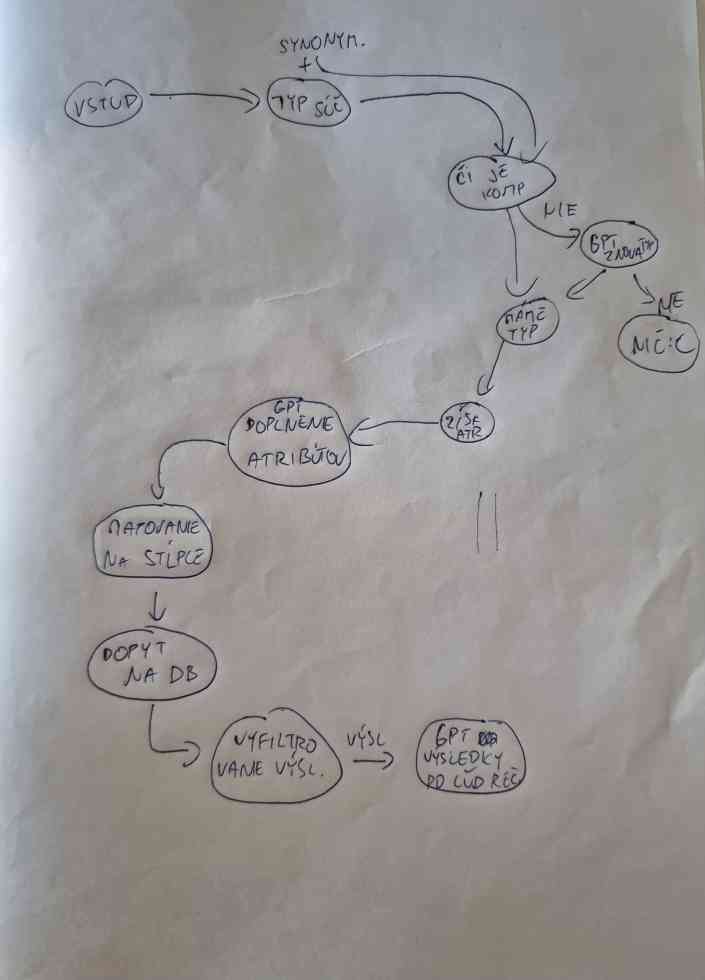 SYNONYM.
+
VSTUP
TYP SÚČ
ČI JE
KOMP
NIE
GPT
ZNOVA
NIE
MÁME
TYP
ZÍSK
ATR
GPT
DOPLNENIE
ATRIBÚTOV
MAPOVANIE
NA STĹPCE
DOPYT
NA DB
VYFILTRO
VANIE VÝSL.
VÝSL
GPT
VÝSLEDKY
DO ĽUD REČ